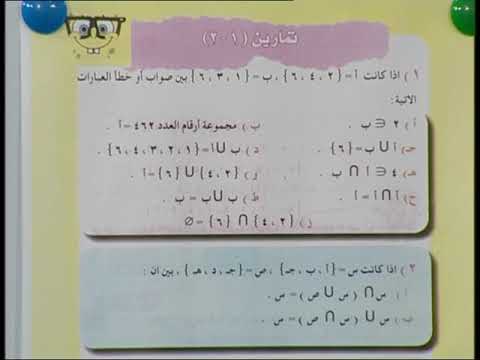 تمارين (٢-١)
١) اذا كانت أ={٢،٤،٦}، ب={١،٣،٦} بين صواب أو خطأ العبارات
الاتية:
أ) ٢ ∈ ب. ب) مجموعة أرقام العدد ٤٦٢=أ.
جـ) أ U ب={٦}. د) ب U أ={١،٢،٣،٤،٦}.
هـ) ٤ ∈ أ ∩ ب. و) {٢،٤} U {٦}=أ.
ح) أ ∩ أ = أ. ط) ب U ب = ب.
ز) {٢،٤} ∩ {٦}=∅
٢) اذا كانت س={أ، ب، جـ}، ص={جـ، د، هـ}، بين ان:
أ) س ∩ (س U ص)=س.
ب) س U (س ∩ ص)=س.